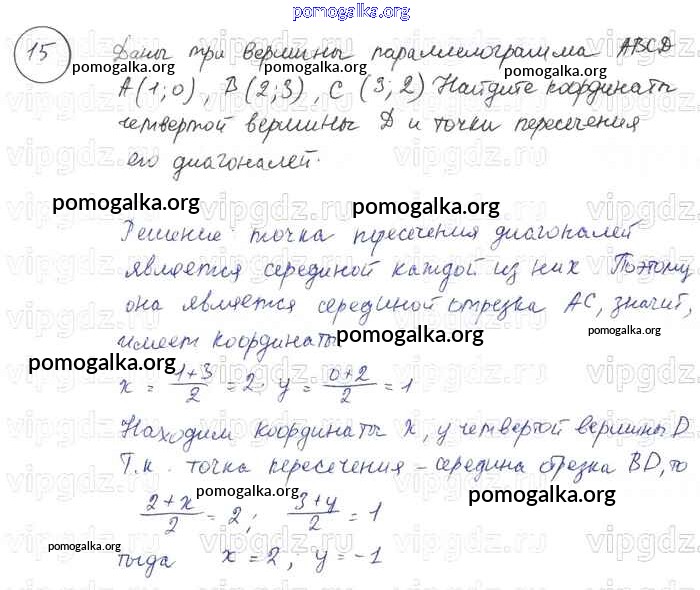 pomogalka.org
15 Даны три вершины параллелограмма ABCD
pomogalka.org pomogalka.org pomogalka.org
A(1;0), B(2;3), C(3;2) Найдите координаты
четвертой вершины D и точки пересечения
его диагоналей.
pomogalka.org pomogalka.org
Решение: точка пересечения диагоналей
является серединой каждой из них Поэтому
она является серединой отрезка AC, значит,
имеет координаты
pomogalka.org pomogalka.org
pomogalka.org
x = 1+3/2 = 2, y = 0+2/2 = 1
Находим координаты x, y четвертой вершины D
Т.к. точка пересечения – середина отрезка BD, то
pomogalka.org pomogalka.org
2+x/2 = 2; 3+y/2 = 1
pomogalka.org
тогда x = 2; y = -1
vipgdz.ru vipgdz.ru vipgdz.ru vipgdz.ru